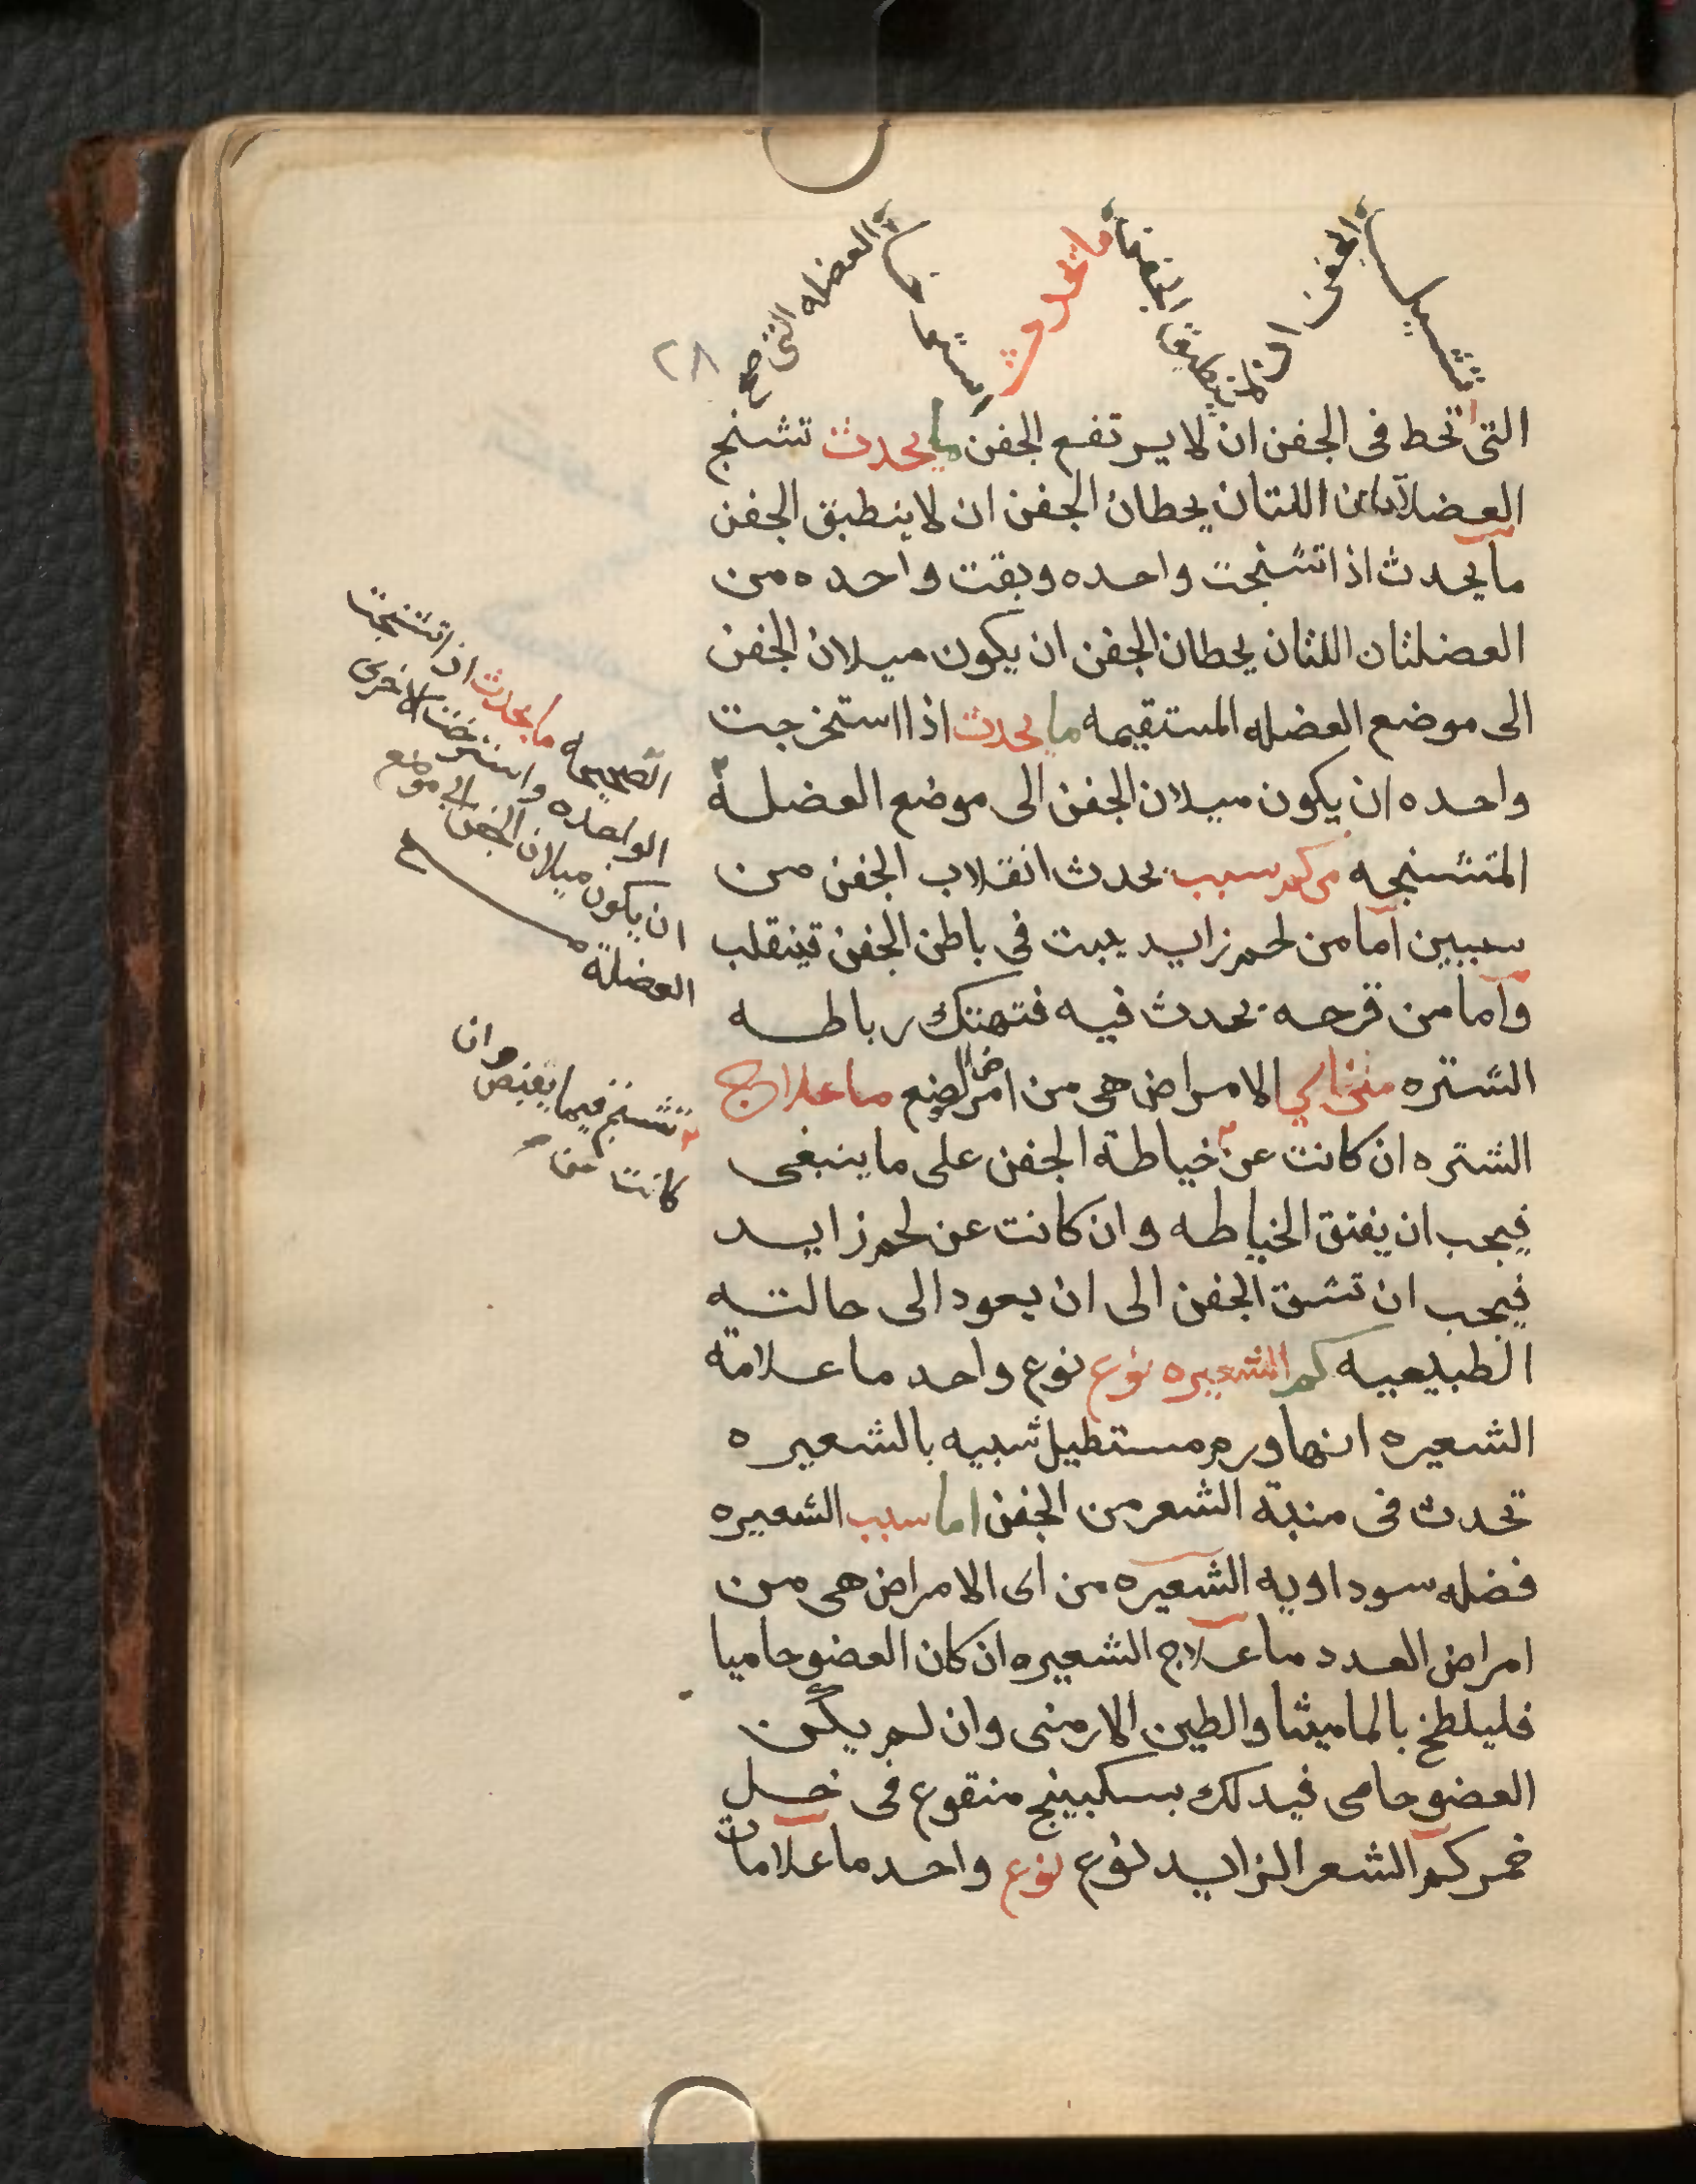 تشيل الجفن ان لا ينطبق الجفن ما يحدث استرخا العضله التى صح
٢٨
التى تحط فى الجفن ان لا يرتفع الجفن ما يحدث تشنج
العضلاتان اللتان يحطان الجفن ان لا ينطبق الجفن
ما يحدث اذا تشنجت واحده وبقت واحده من
العضلتان اللتان يحطان الجفن ان يكون ميلان الجفن
الى موضع العضله المستقيمه ما يحدث اذا استخرجت
واحده ان يكون ميلان الجفن الى موضع العضلة
المتشنجه من كم سبب يحدث انقلاب الجفن من
سببين اما من لحم زايد يبت فى باطن الجفن فينقلب
واما من قرحه يحدث فيه فتهتك رباطه
الشتره من اي الامراض هى من امراض الوضع ما علاج
الشتره ان كانت عن خياطة الجفن على ما ينبغى
فيجب ان يفتق الخياطه وان كانت عن لحم زايد
فيجب ان تشق الجفن الى ان يعود الى حالته
الطبيعيه كم الشعيره نوع نوع واحد ما علامة
الشعيره انها ورم مستطيل شبيه بالشعيره
تحدث فى منبة الشعر من الجفن اما سبب الشعيره
فضله سوداويه الشعيره من اى الامراض هى من
امراض العدد ما علاج الشعيره ان كان العضو حاميا
فليلطخ بالماميثا والطين الارمنى وان لم يكن
العضو حامى فيدلك بسكبينج منقوع فى خل
خمر كم الشعر الزايد نوع نوع واحد ما علامات
الصحيحه ما يحدث اذا تشنجت
الواحده واسترخت الاخرى
ان يكون ميلان الجفن الى موضع
العضلة
تشنج فيما يغبض وان
كانت من